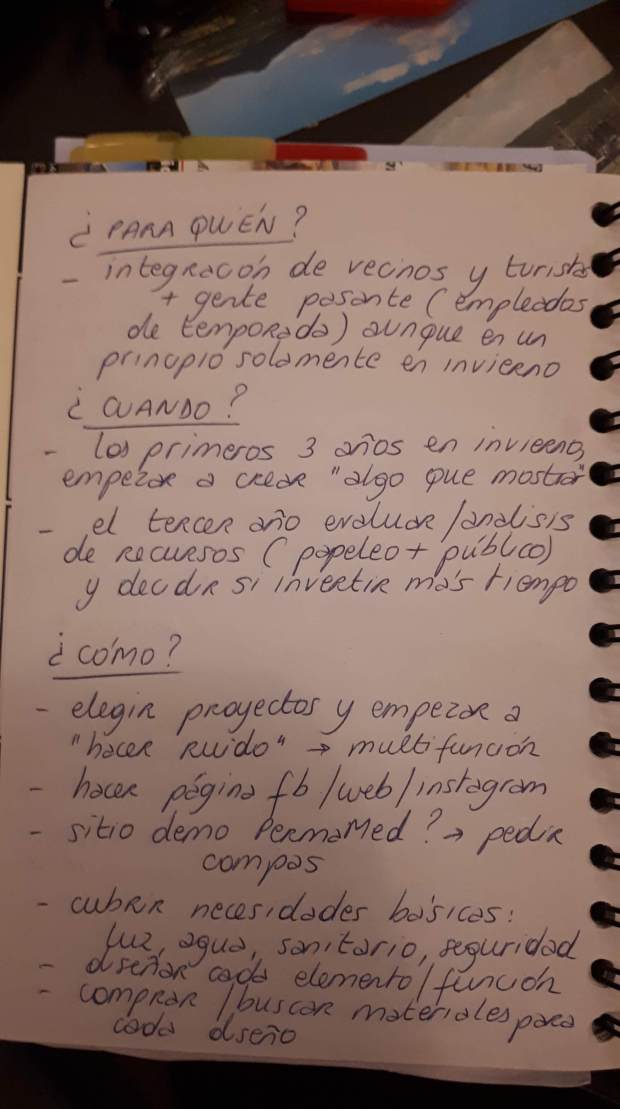 ¿PARA QUIÉN?
- integración de vecinos y turistas
+ gente pasante (empleados
de temporada) aunque en un
principio solamente en invierno
¿CUANDO?
- los primeros 3 años en invierno,
empezar a crear "algo que mostrar"
- el tercer año evaluar/analisis
de recursos (papeleo + público)
y decidir si invertir más tiempo
¿CÓMO?
- elegir proyectos y empezar a
"hacer ruido" → multifunción
- hacer página fb/web/instagram
- sitio demo PermaMed? → pedir
compas
- cubrir necesidades básicas:
luz, agua, sanitario, seguridad
- diseñar cada elemento/función
- comprar/buscar materiales para
cada diseño